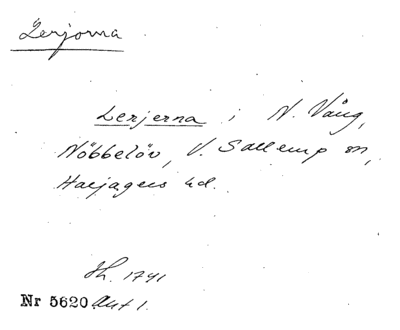 Lerjorna
Lerjerna i N. Vång,
Nöbbelöv, V. Sallerup sn,
Harjagers hd.
Sk. 1741
Nr 5620 Akt 1.